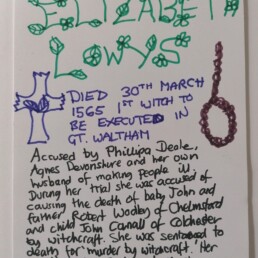 ELIZABETH
LOWYS
DIED 30TH MARCH
1565 1ST WITCH TO
BE EXECUTED IN
GT. WALTHAM
Accused by Phillipa Deale,
Agnes Devonshire and her own
husband of making people ill.
During her trial she was accused of
causing the death of baby John and
father Robert Wodley of Chelmsford
and child John Canall of Colchester
by witchcraft. She was sentenced to
death for 'murder by witchcraft.' Her